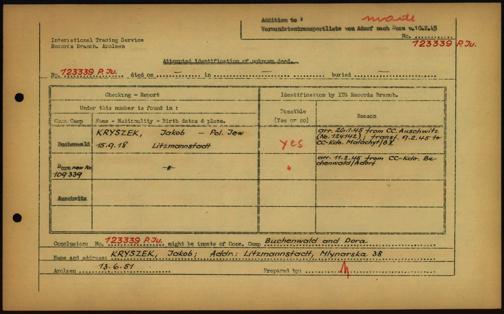 Addition to : made
Verwundetentransportliste von Adorf nach Dora v.10.2.45
International Tracing Service
Records Branch, Arolsen
No.
123339 P.Ju.
Attempted identification of unknown dead.
No. 123339 P.Ju. died on — in — buried —
Checking - Report
Identification by ITS Records Branch.
Under this number is found in :
Possible
(Yes or no)
Reason
Conc. Camp
Name - Nationality - Birth dates & place.
Buchenwald
KRYSZEK, Jakob – Pol. Jew
15.9.18 Litzmannstadt
yes
arr. 26.1.45 from CC. Auschwitz
transf. 9.2.45 to
CC-Kdr.
Dora new No
109339
-"-
"
arr. 11.2.45 from CC-Kdr. Bu-
chenwald/Adorf
Auschwitz
Conclusion: No. 123339 P.Ju. might be inmate of Conc. Camp Buchenwald and Dora
Name and address: KRYSZEK, Jakob; Addr.: Litzmannstadt, Mlynarska 38
Arolsen 13.6.51 Prepared by: